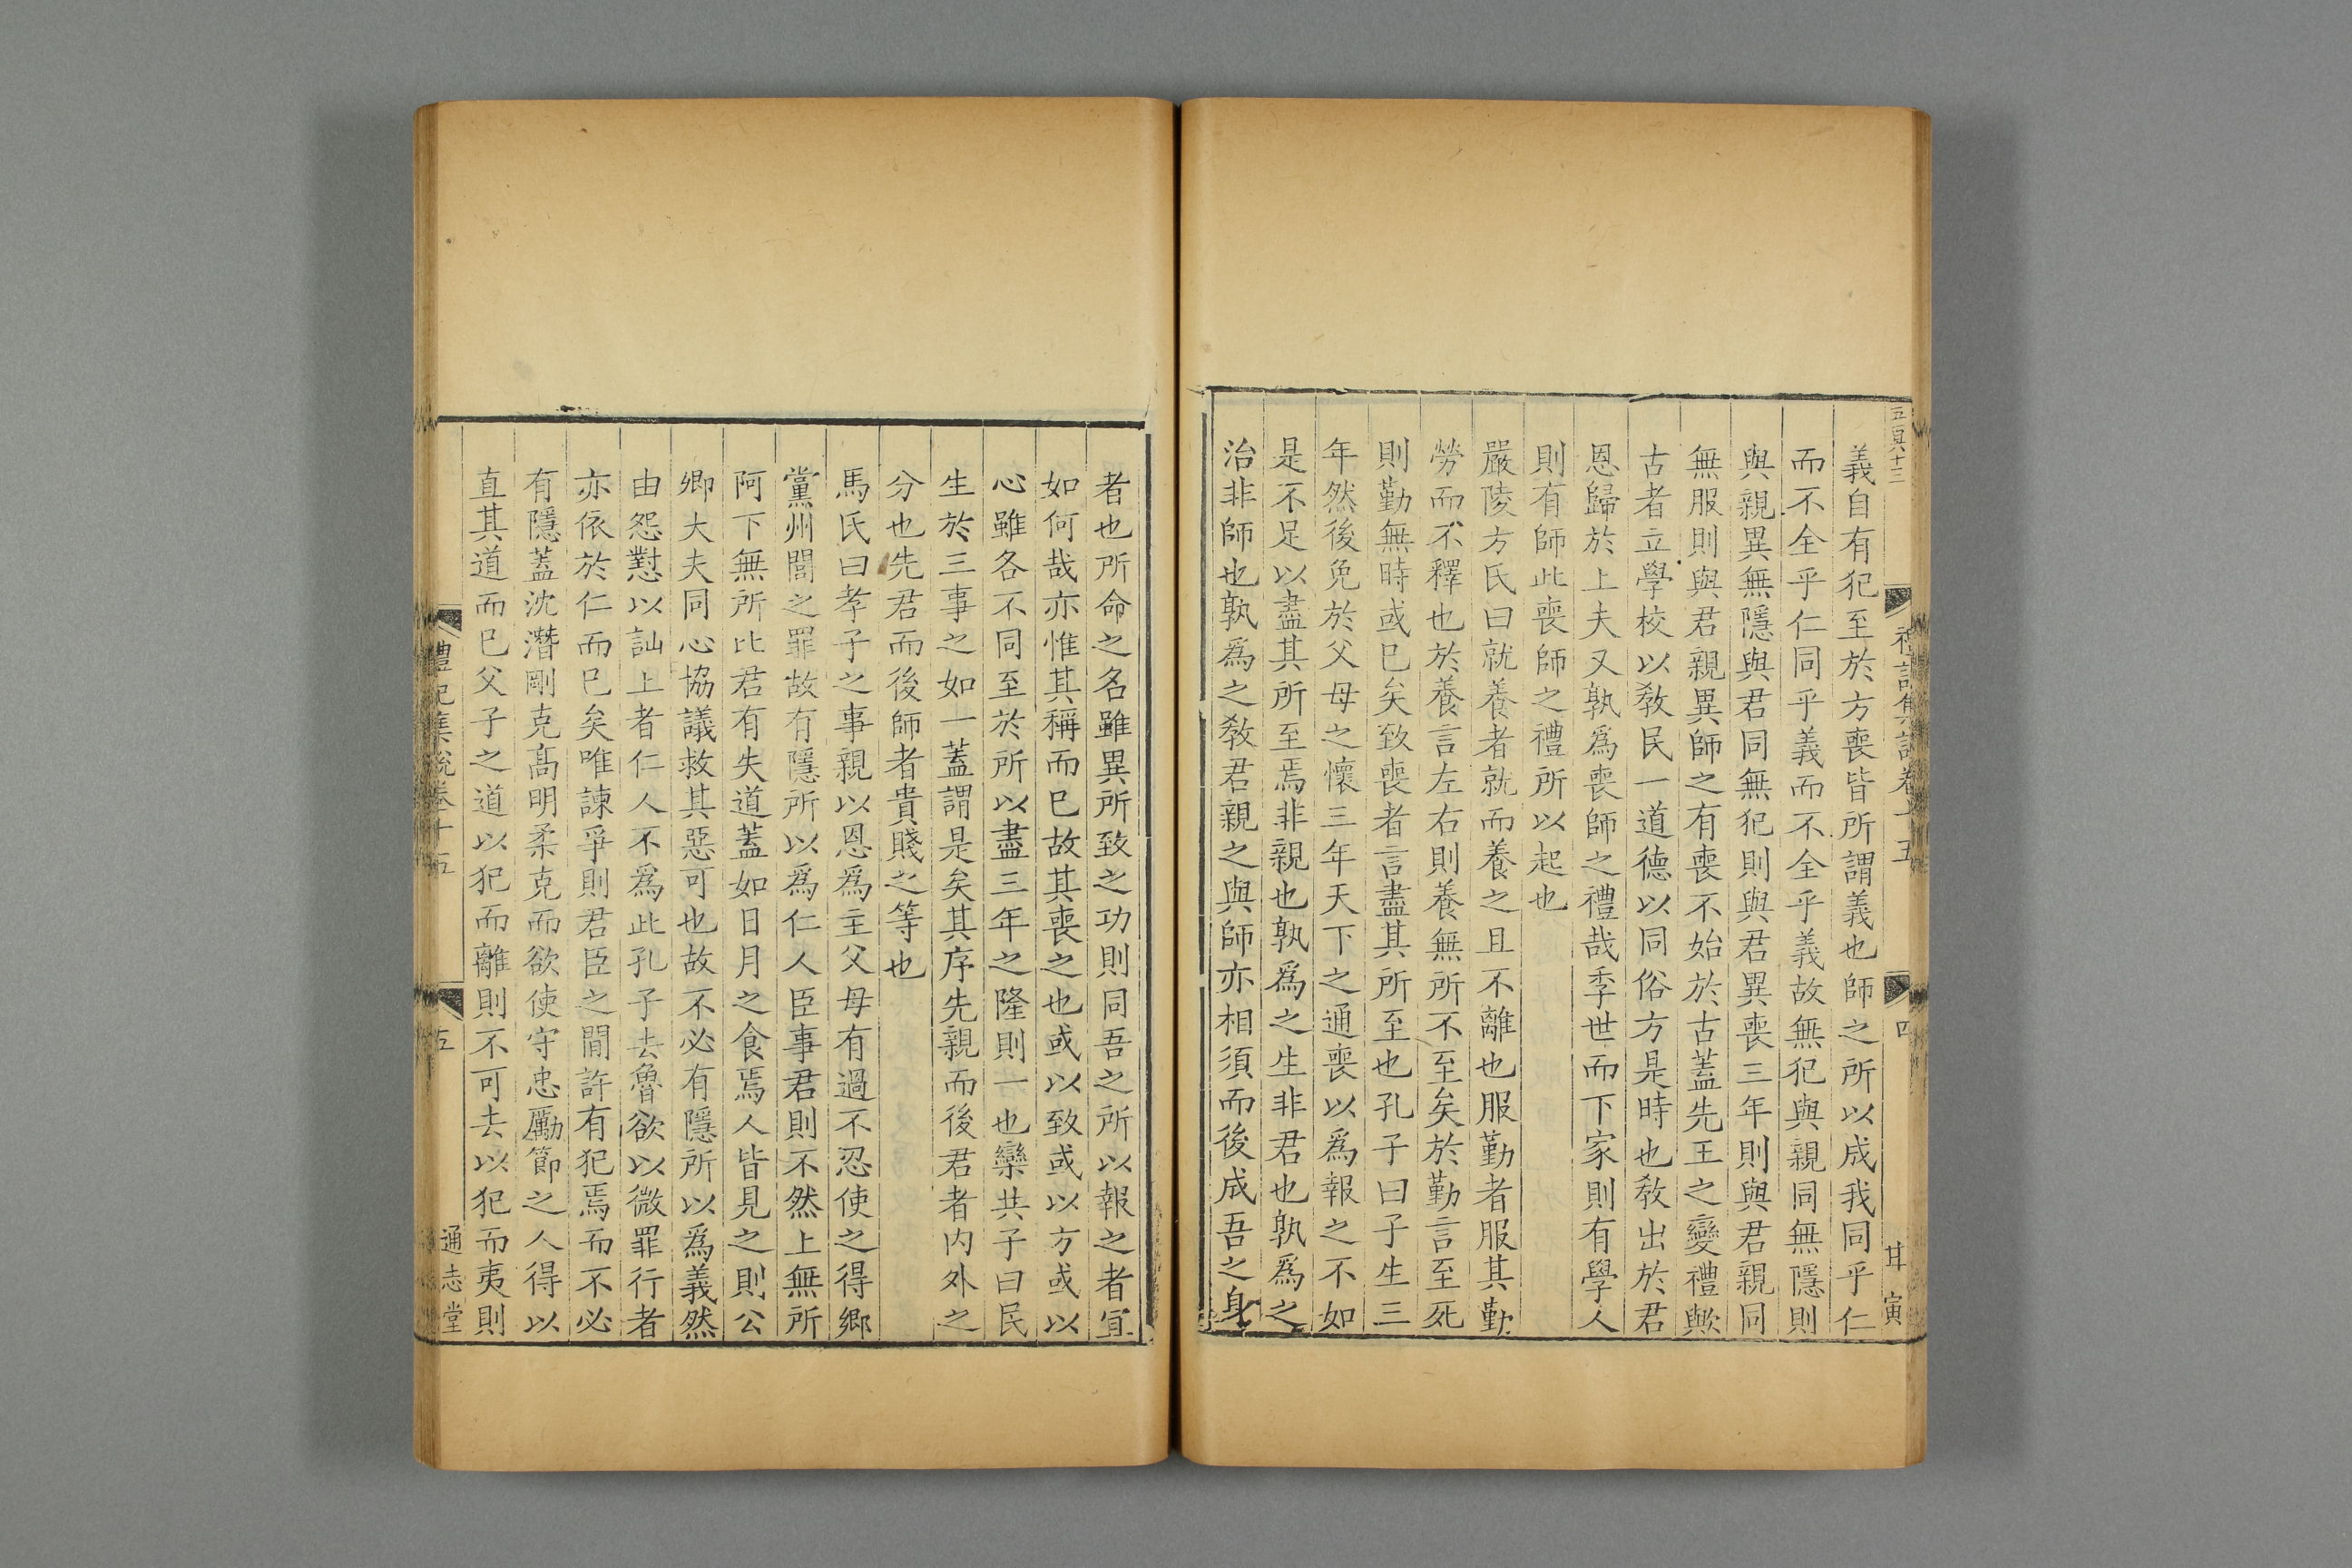 義自有犯至於方喪皆所謂義也師之所以成我同乎仁
而不全乎仁同乎義而不全乎義故無犯與親同無隱則
與親異無隱與君同無犯則與君異喪三年則與君親同
無服則與君親異師之有喪不始於古蓋先王之變禮歟
古者立學校以敎民一道德以同俗方是時也敎出於君
恩歸於上夫又孰爲喪師之禮哉季世而下家則有學人
則有師此喪師之禮所以起也
嚴陵方氏曰就養者就而養之且不離也服勤者服其勤
勞而不釋也於養言左右則養無所不至矣於勤言至死
則勤無時或已矣致喪者言盡其所至也孔子曰子生三
年然後免於父母之懷三年天下之通喪以爲報之不如
是不足以盡其所至焉非親也孰爲之生非君也孰爲之
治非師也孰爲之敎君親之與師亦相須而後成吾之身
者也所命之名雖異所致之功則同吾之所以報之者宜
如何哉亦惟其稱而已故其喪之也或以致或以方或以
心雖各不同至於所以盡三年之隆則一也欒共子曰民
生於三事之如一蓋謂是矣其序先親而後君者内外之
分也先君而後師者貴賤之等也
馬氏曰孝子之事親以恩爲主父母有過不忍使之得鄉
黨州閭之罪故有隱所以爲仁人臣事君則不然上無所
阿下無所比君有失道蓋如日月之食焉人皆見之則公
卿大夫同心協議救其惡可也故不必有隱所以爲義然
由怨懟以訕上者仁人不爲此孔子去魯欲以微罪行者
亦依於仁而已矣唯諫爭則君臣之間許有犯焉而不必
有隱蓋沈潛剛克髙明柔克而欲使守忠厲節之人得以
直其道而已父子之道以犯而離則不可去以犯而夷則
禮記集説卷十五
五
通志堂